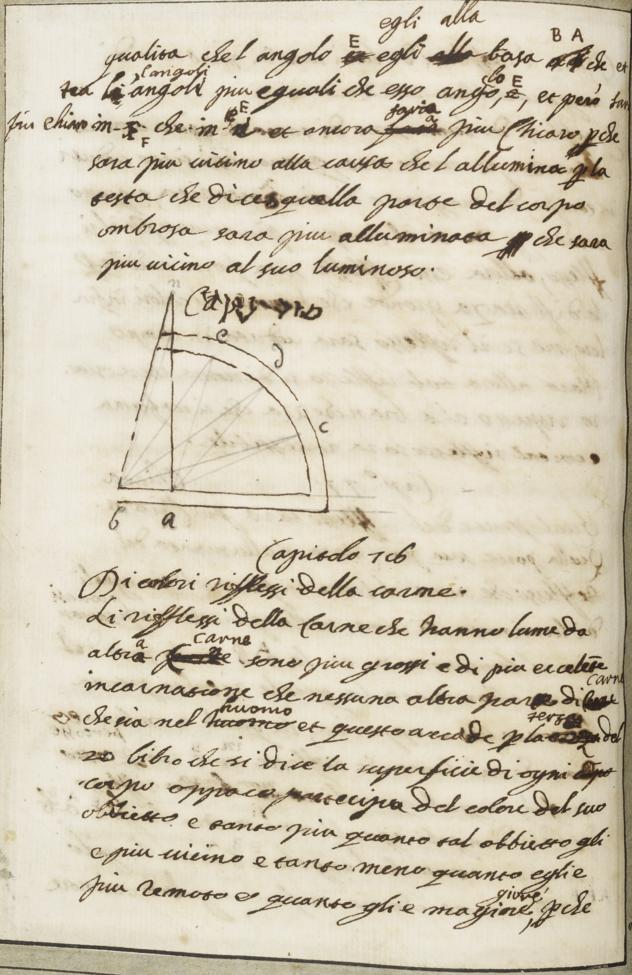 egli alla
qualita che l angolo E egli alla basa B A che et
tra li langoli angoli piu eguali che esso angolo E, et però sara
piu chiaro in F che in E et ancora saria piu Chiaro pche
sara piu uicino alla causa che l allumina p la
testa che dice quella parte del corpo
ombrosa sara piu alluminata che sara
piu uicino al suo luminoso.
n
e
d
c
b a
Capitolo 76
Di colori rifflessi della carne.
Li rifflessi della Carne che hanno lume da
altra Carne sono piu grossi e di piu eccelẽte
incarnatione che nessuna altra parte di Carne
che sia nel huomo et questo accade p la del
libro che si dice la superficie di ogni
corpo oppaco partecipa del colore del suo
obbietto e tanto piu quanto tal obbietto gli
e piu uicino e tanto meno quanto egli e
piu remoto e quanto gli e magiore, pche